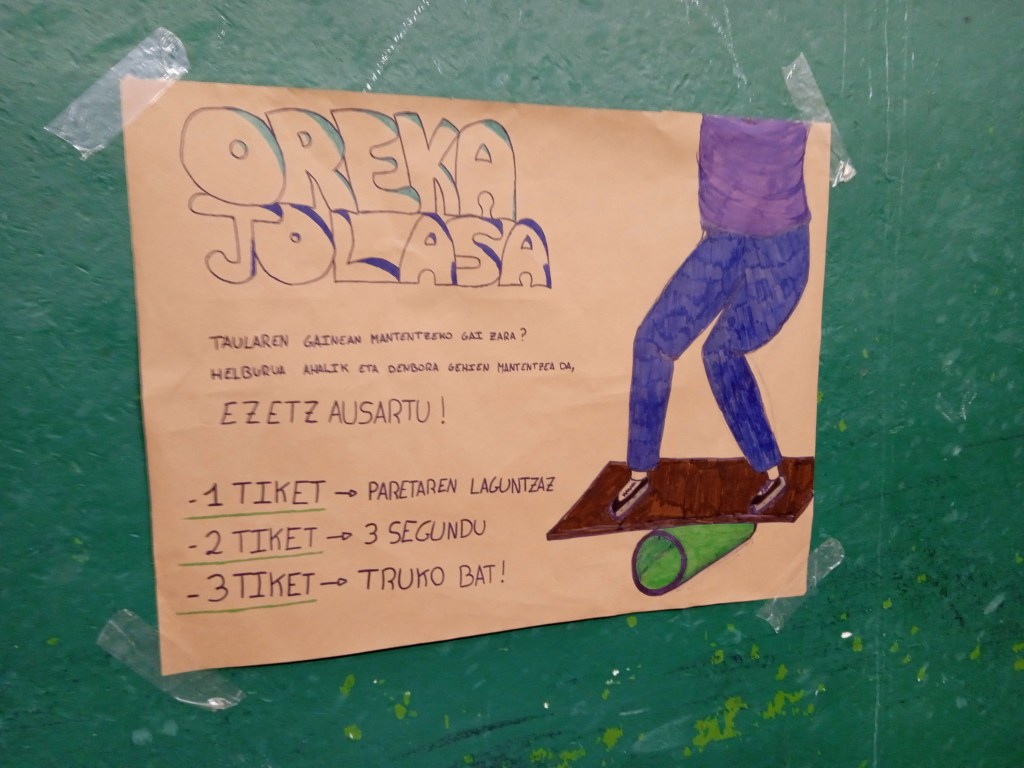 OREKA
JOLASA
TAULAREN GAINEAN MANTENTZEKO GAI ZARA?
HELBURUA AHALIK ETA DENBORA GEHIEN MANTENTZEA DA,
EZETZ AUSARTU!
- 1 TIKET → PARETAREN LAGUNTZAZ
- 2 TIKET → 3 SEGUNDU
- 3 TIKET → TRUKO BAT!